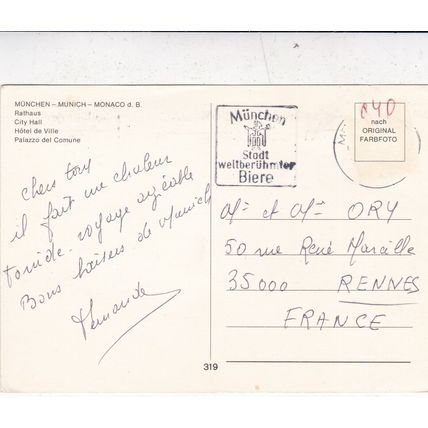 MÜNCHEN – MUNICH – MONACO d. B.
Rathaus
City Hall
Hôtel de Ville
Palazzo del Comune
chers tous
il fait une chaleur
torride. voyage agréable
Bons baisers de Munich
München
Stadt
weltberühmter
Biere
140
nach
ORIGINAL
FARBFOTO
Mr et Mme ORY
50 rue René Marcille
35000 RENNES
FRANCE
319